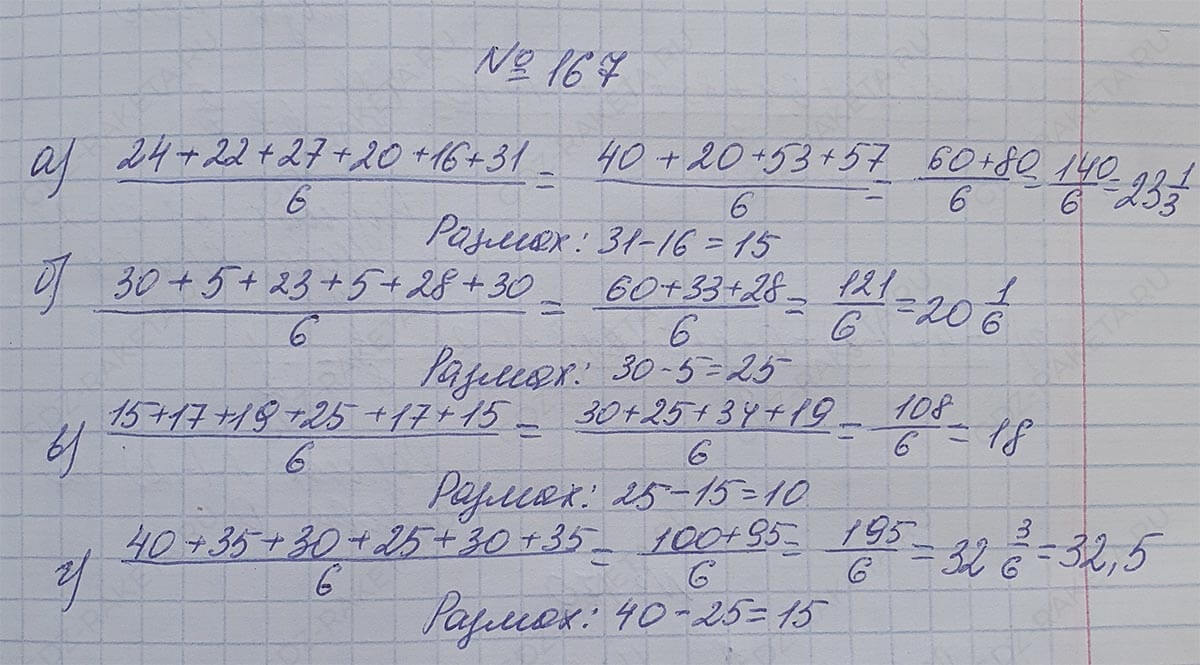 № 167
а) (24+22+27+20+16+31)/6 = (40+20+53+57)/6 = (60+80)/6 = 140/6 = 23 1/3
Размах: 31-16=15
б) (30+5+23+5+28+30)/6 = (60+33+28)/6 = 121/6 = 20 1/6
Размах: 30-5=25
в) (15+17+19+25+17+15)/6 = (30+25+34+19)/6 = 108/6 = 18
Размах: 25-15=10
г) (40+35+30+25+30+35)/6 = (100+95)/6 = 195/6 = 32 3/6 = 32,5
Размах: 40-25=15